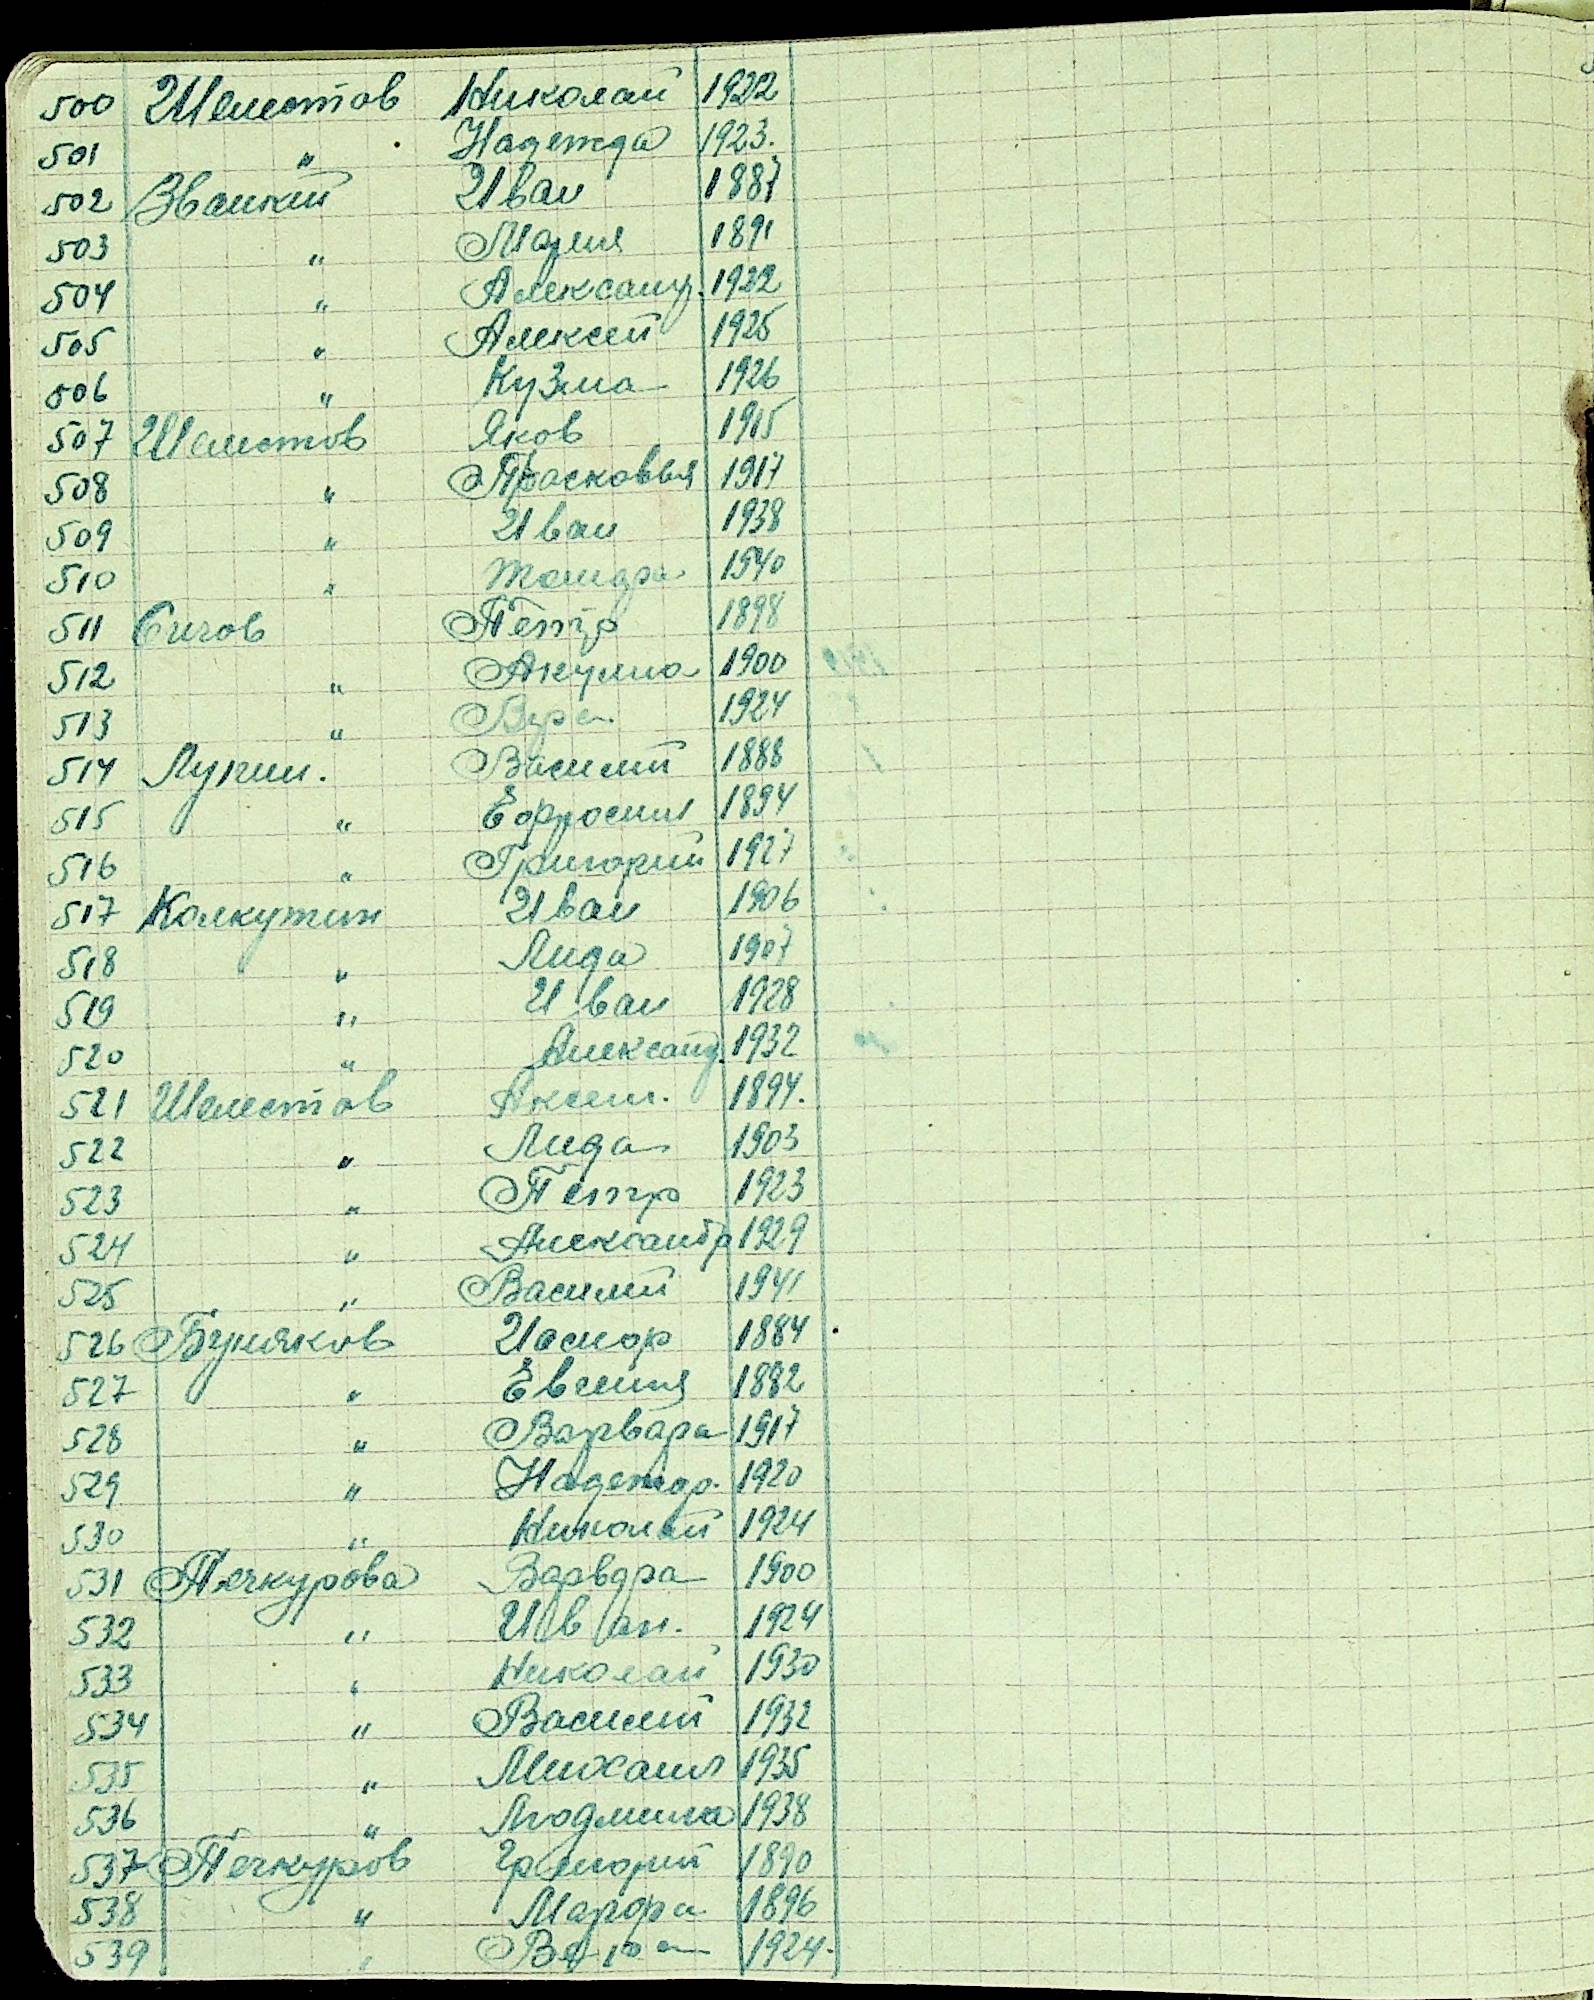 500 Шелестов Николай 1922
501 " Надежда 1923.
502 Званкий Иван 1887
503 " Мария 1891
504 " Александ. 1922
505 " Алексей 1925
506 " Кузма 1926
507 Шелестов Яков 1915
508 " Прасковья 1917
509 " Иван 1938
510 " 1940
511 Сичов Петр 1898
512 " Акулина 1900
513 " Вера 1924
514 Лупин. Василий 1888
515 " Ефросиня 1894
516 " Григорий 1927
517 Колкутин Иван 1906
518 " Лида 1907
519 " Иван 1928
520 " Александ. 1932
521 Шелестов Аксен. 1894.
522 " Лида 1903
523 " Петр 1923
524 " Александр 1929
525 " Василий 1941
526 Буняков 1884
527 " Евгения 1882
528 " Варвара 1917
529 " Надежд. 1920
530 " Николай 1924
531 Печкурова Варвара 1900
532 " Иван. 1924
533 " Николай 1930
534 " Василий 1932
535 " Михаил 1935
536 " Людмила 1938
537 Печкуров Григорий 1890
538 " Марфа 1896
539 " 1924.